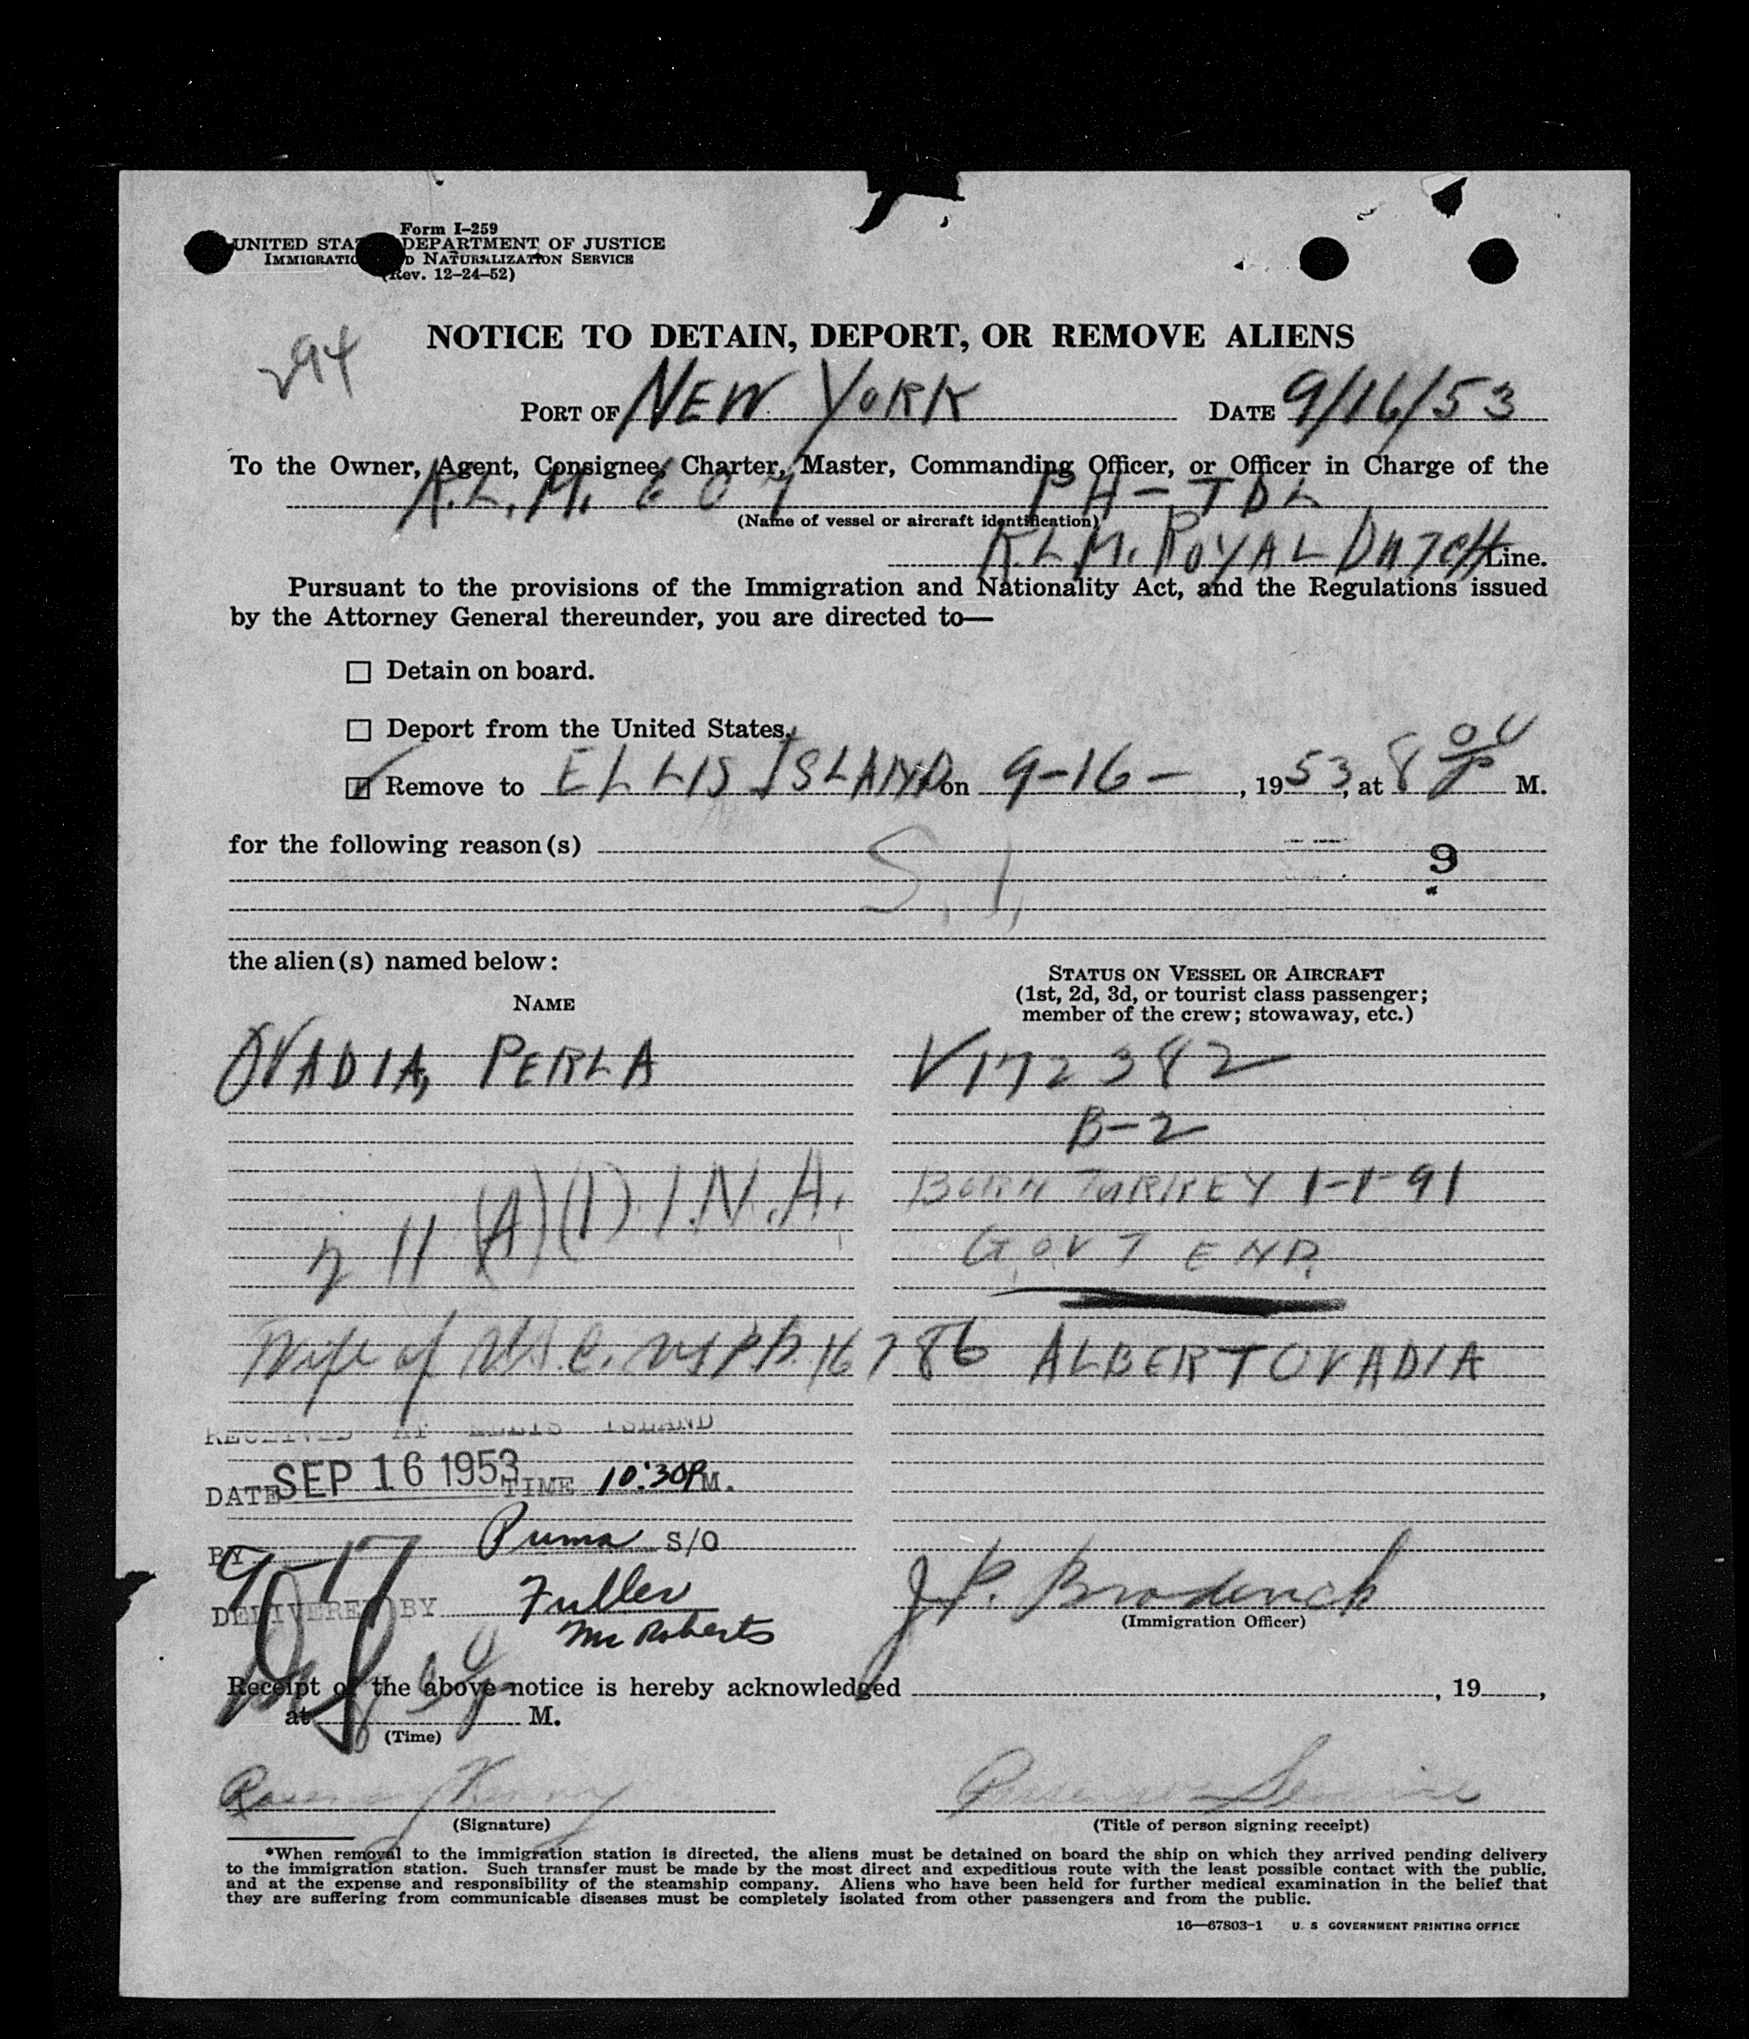 Form I-259
UNITED STA DEPARTMENT OF JUSTICE
IMMIGRATIO D NATURALIZATION SERVICE
(Rev. 12-24-52)
294
NOTICE TO DETAIN, DEPORT, OR REMOVE ALIENS
PORT OF NEW YORK DATE 9/16/53
To the Owner, Agent, Consignee, Charter, Master, Commanding Officer, or Officer in Charge of the
K.L.M. 607 PH-TDL
(Name of vessel or aircraft identification)
K.L.M. ROYAL DUTCH Line.
Pursuant to the provisions of the Immigration and Nationality Act, and the Regulations issued
by the Attorney General thereunder, you are directed to—
☐ Detain on board.
☐ Deport from the United States.
☑ Remove to ELLIS ISLAND on 9-16-, 1953, at 8 00 P M.
for the following reason(s)
S. I.
9
the alien(s) named below:
NAME
STATUS ON VESSEL OR AIRCRAFT
(1st, 2d, 3d, or tourist class passenger;
member of the crew; stowaway, etc.)
OVADIA, PERLA V172382
B-2
BORN TURKEY 1-1-91
11 (A)(1) I.N.A.
GOVT END.
Wife of U.S.C. P.P. 16786 ALBERT OVADIA
RECEIVED AT ELLIS ISLAND
DATE SEP 16 1953 TIME 10:30 P M.
BY Puma S/O
9-17
DELIVERED BY Fuller
McRoberts
J.P. Broderick
(Immigration Officer)
Receipt of the above notice is hereby acknowledged , 19 ,
at M.
(Time)
Rosemary Kenny
Passenger Service
(Signature)
(Title of person signing receipt)
*When removal to the immigration station is directed, the aliens must be detained on board the ship on which they arrived pending delivery
to the immigration station. Such transfer must be made by the most direct and expeditious route with the least possible contact with the public,
and at the expense and responsibility of the steamship company. Aliens who have been held for further medical examination in the belief that
they are suffering from communicable diseases must be completely isolated from other passengers and from the public.
16—67803-1 U. S GOVERNMENT PRINTING OFFICE